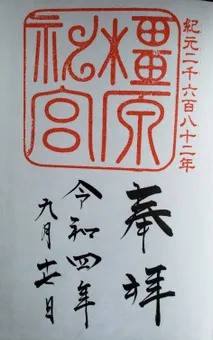 紀元二千六百八十二年
橿原
神宮
奉拝
令和四年
九月十七日